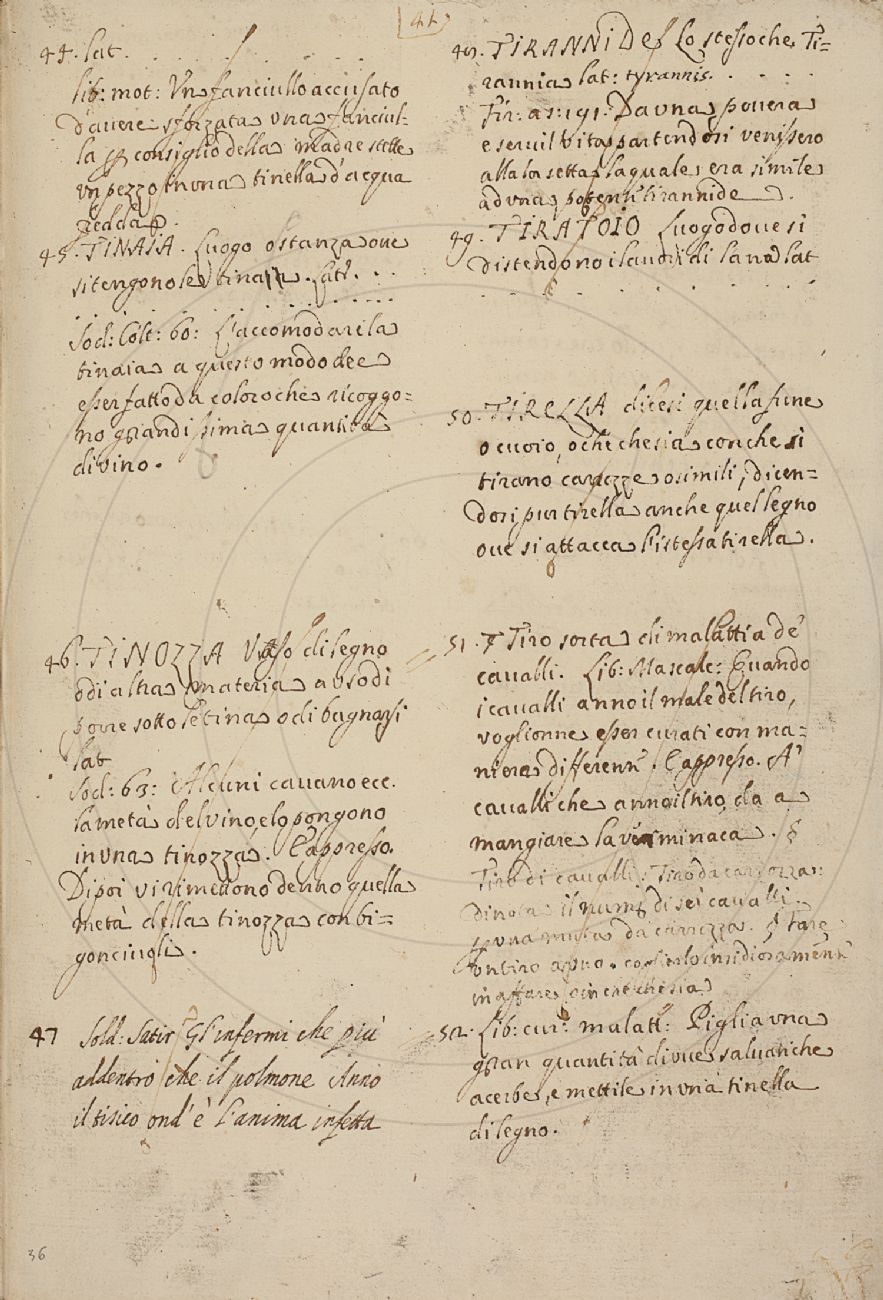 41
44. lat . . . . .
lib: mot: Un fanciullo accusato
d'avere sforzata una fanciul-
la p consiglio della madre stette
un pezzo in una tinella d'acqua
fredda.
45. TINAIA. Luogo o stanza ove
si tengono le tina. lat. . .
. . . . . . . . . . . .
Sod: Colt: 60: L'accomodare la
tinaia a questo modo dee
esser fatto da coloro che ricoggo=
no grandissima quantità
di vino.
46. TINOZZA Vaso di legno
o di altra materia a uso di
porre sotto le tina o di bagnarsi
lat
Sod: 63: Alcuni cavano ecc.
la metà del vino, e lo pongono
in una tinozza. E appresso.
Dipoi vi rimettono denno quella
metà della tinozza con bi-=
gonciuoli.
47 Sold: Satir Gl'infermi che più
addentro che il polmone Anno
il tisico ond' è l'anima infetta
36
TIRANNIDE Lo stesso che Ti-
rannia lat: tyrannis. . . .
Fir: as: 191. Da una povera
e servil vita partendosi venissero
alla lor setta la quale era simile
ad una potentе tirannide.
49. TIRATOIO Luogo dove si
distendono i laudi di lana lat
. . . . . . .
50. TIRELLA dicesi quella fune
o cuoio, o che che sia con che si
tirano carozze o simili, dicen-
dosi pur tirella anche quel legno
ove si attacca l'istessa tirella.
51. § Tiro sorta di malattia de'
cavalli. Lib: Mascalc: Quando
i cavalli anno il male del tiro,
voglionne esser curati con ma=
niera differente. E appresso. A'
cavalli che anno il tiro, da a
mangiare la verminaca. §
Tiro di cavalli, Tiro da carrozza:
dinota il num: di sei cavalli
p una muta da carrozza. § Fare
un tiro a uno. coglierlo insidiosamente
in affare, o in che che sia
52. Lib: cur: malatt: Piglia una
gran quantità di uve salvatiche
acerbe, e mettile in una tinella
di legno.